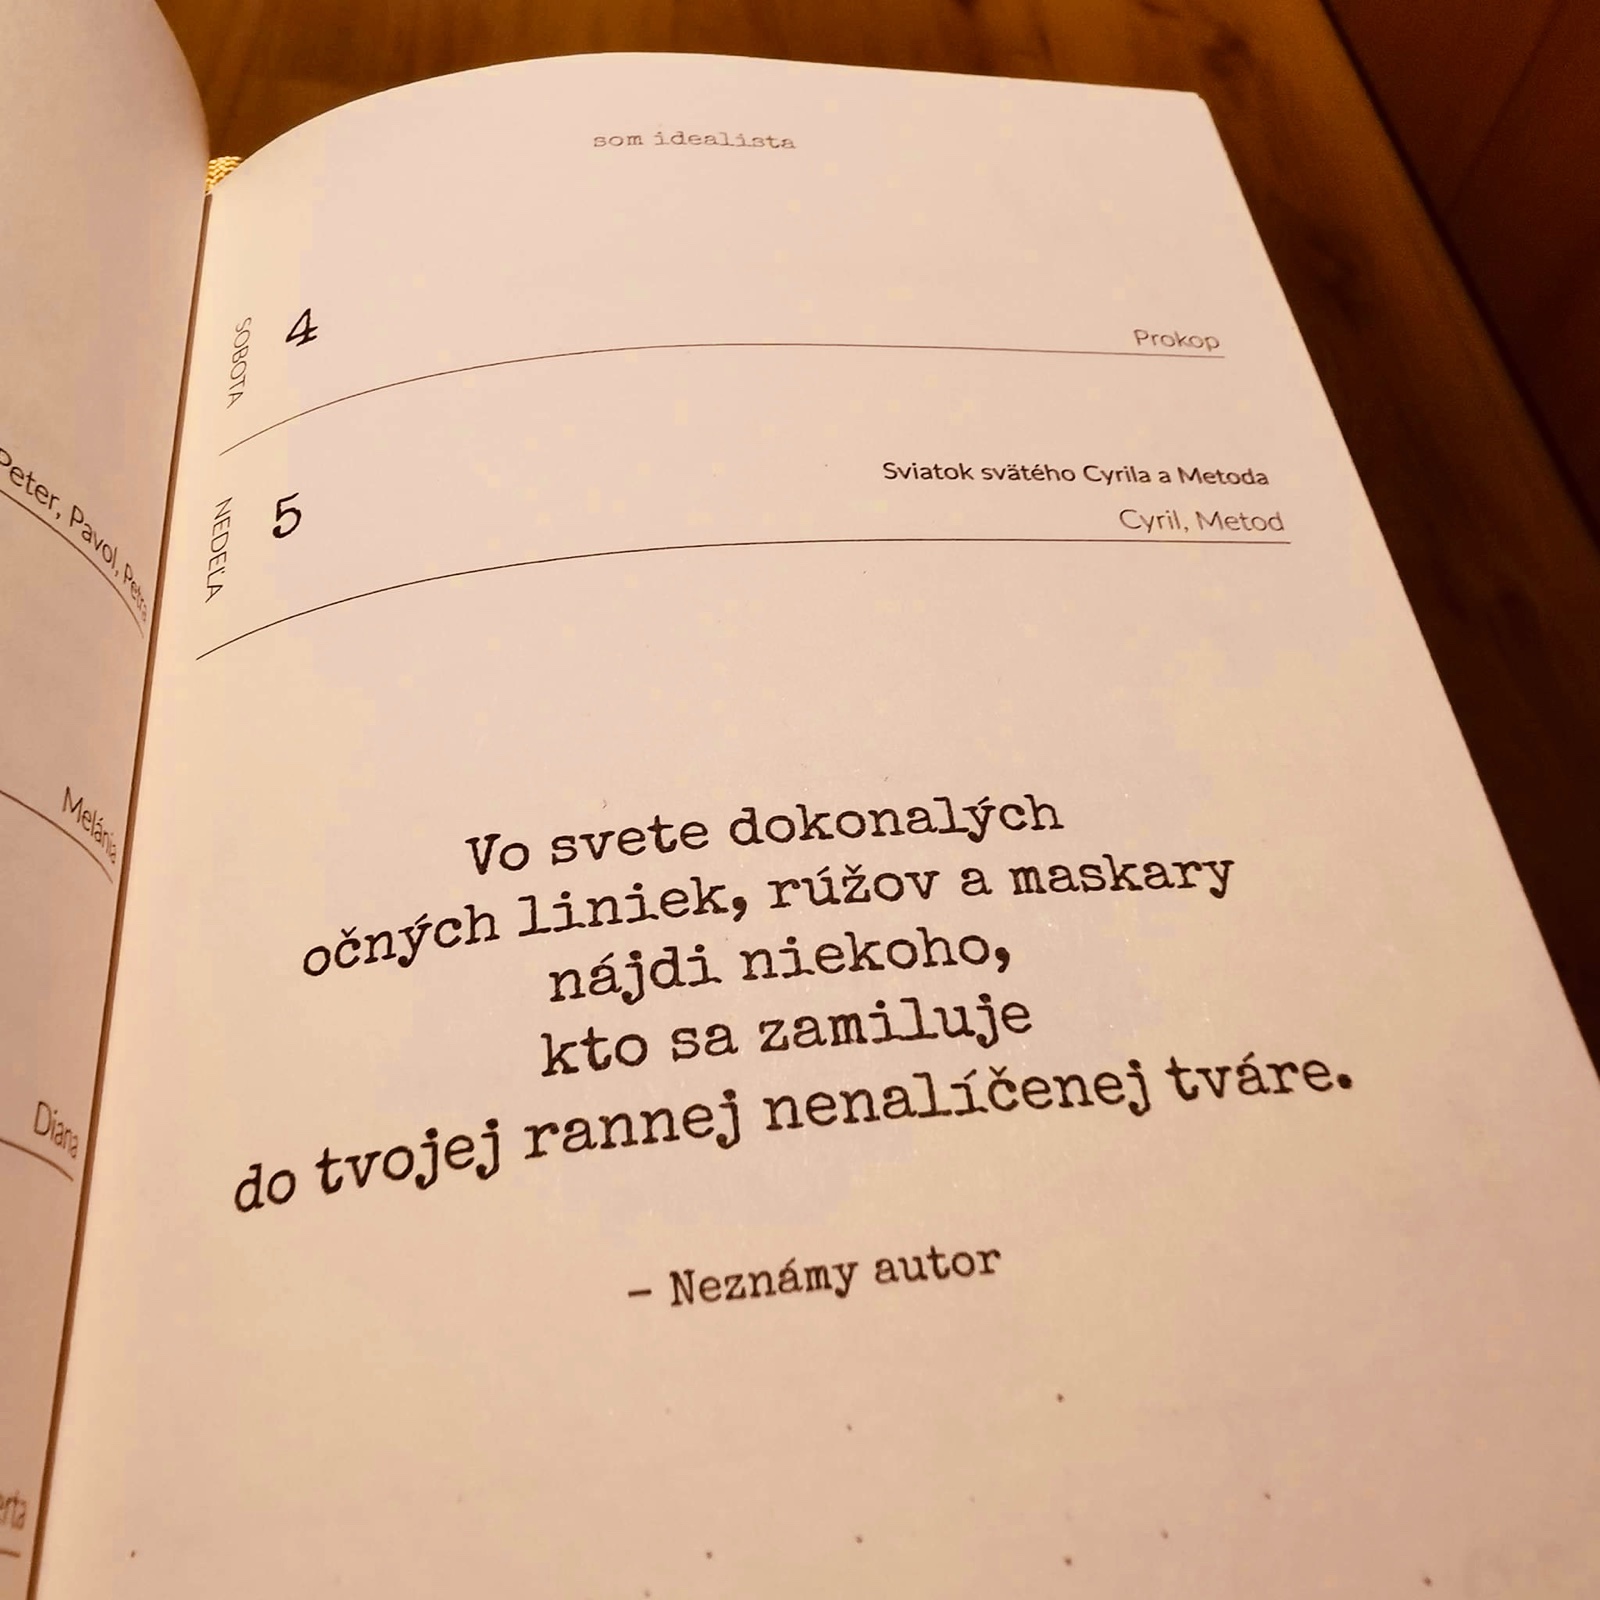 Peter, Pavol, Petra
Melánia
Diana
som idealista
SOBOTA
4
Prokop
NEDEĽA
5
Sviatok svätého Cyrila a Metoda
Cyril, Metod
Vo svete dokonalých
očných liniek, rúžov a maskary
nájdi niekoho,
kto sa zamiluje
do tvojej rannej nenalíčenej tváre.
– Neznámy autor